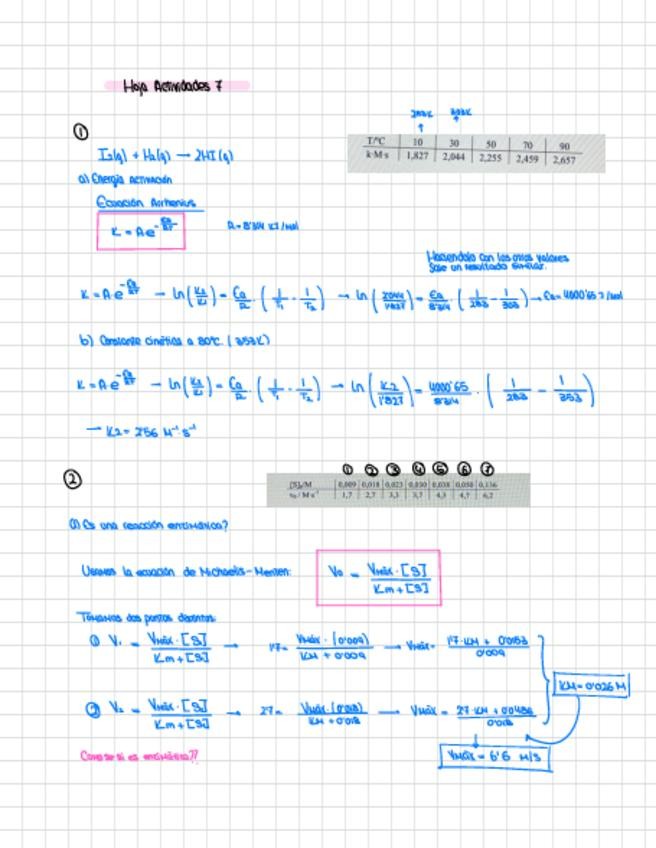 Hoja Actividades 7
283K 303K
①
T/°C 10 30 50 70 90
k·M·s 1,827 2,044 2,255 2,459 2,657
I₂(g) + H₂(g) → 2HI (g)
a) Energía activación
Ecuación Arrhenius
K = A e^(-Ea/RT) R = 8'314
Haciendolo con los otros valores
Sale un resultado similar.
K = A·e^(-Ea/RT) → ln(K₂/K₁) = Ea/R · (1/T₁ - 1/T₂) → ln(2044/1827) = Ea/8'314 · (1/283 - 1/303) → Ea = 4000'65 J/mol
b) Constante cinética a 80°C. (353K)
K = A·e^(-Ea/RT) → ln(K₂/K₁) = Ea/R · (1/T₁ - 1/T₂) → ln(K2/1'827) = 4000'65/8'314 · (1/283 - 1/353)
→ K2 = 2'56 M⁻¹·s⁻¹
② ① ② ③ ④ ⑤ ⑥ ⑦
[S]₀/M 0,009 0,018 0,023 0,030 0,038 0,050 0,136
v₀/M·s⁻¹ 1,7 2,7 3,3 3,7 4,3 4,7 6,2
a) Es una reacción enzimática?
Usamos la ecuación de Michaelis-Menten: V₀ = Vmáx·[S] / Km+[S]
Tomamos dos puntos distintos:
① V₁ = Vmáx·[S] / Km+[S] → 1'7 = Vmáx·(0'009) / KM + 0'009 → Vmáx = 1'7·KM + 0'0153 / 0'009
KM = 0'026 M
② V₂ = Vmáx·[S] / Km+[S] → 2'7 = Vmáx·(0'018) / KM + 0'018 → Vmáx = 2'7·KM + 0'0486 / 0'018
Vmáx = 6'6 M/s
Como se si es enzimática??